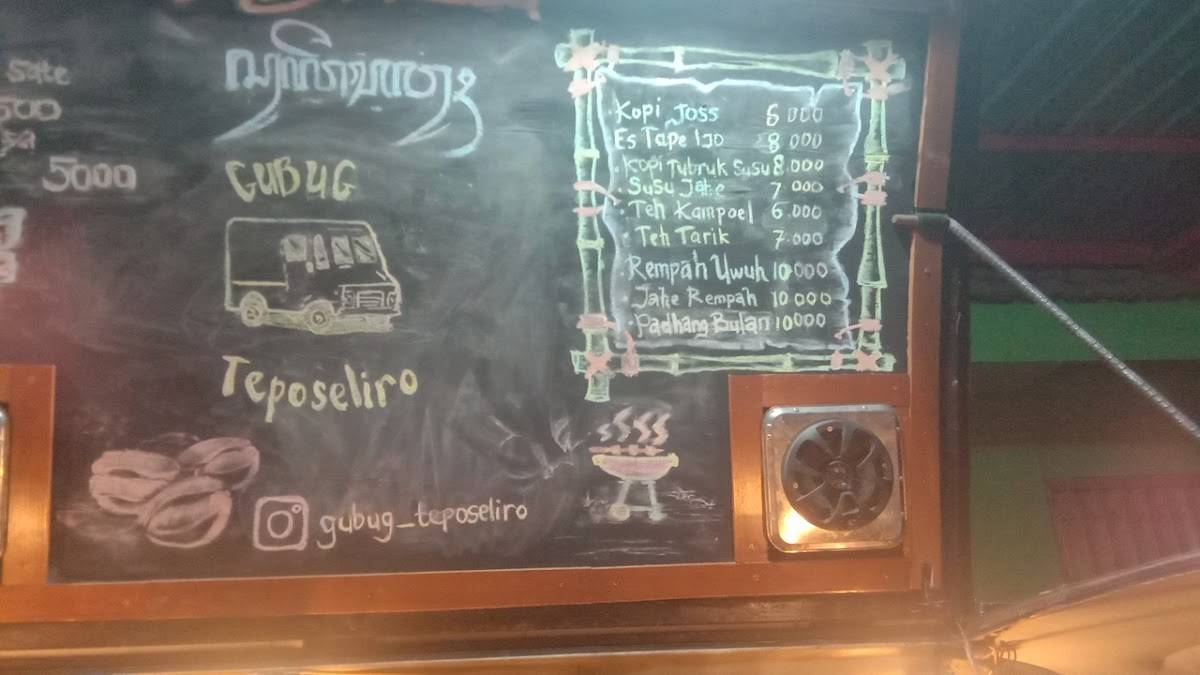 sate
500
5000
GUBUG
Teposeliro
gubug_teposeliro
Kopi Joss 6 000
Es Tape Ijo 8 000
Kopi Tubruk Susu 8.000
Susu Jahe 7 000
Teh Kampoel 6.000
Teh Tarik 7.000
Rempah Uwuh 10.000
Jahe Rempah 10.000
Padhang Bulan 10000